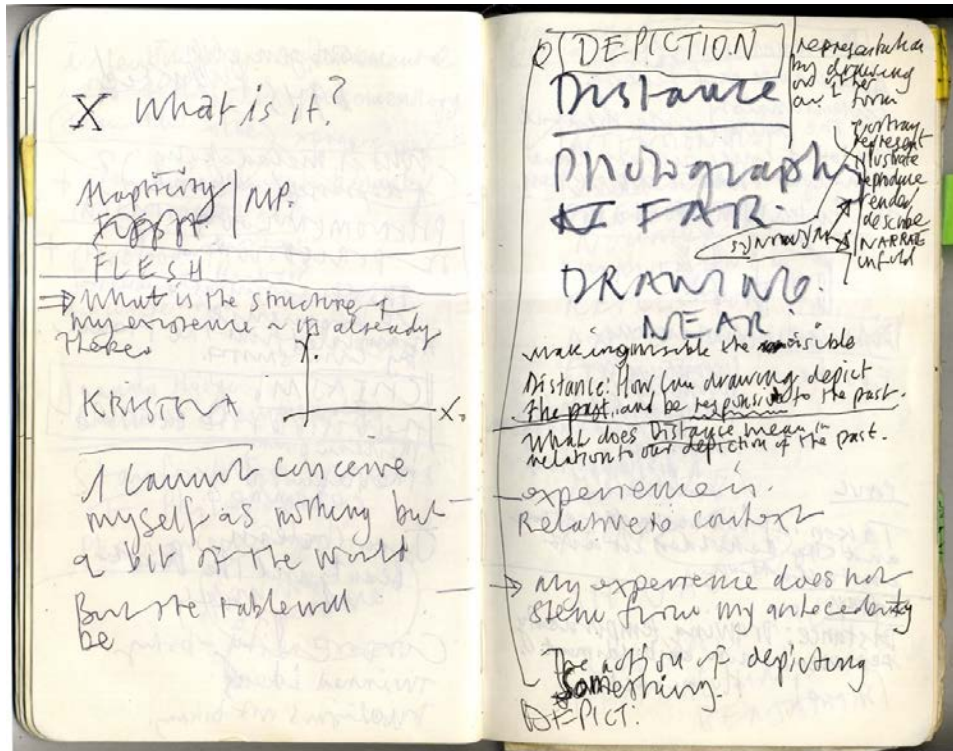 X What is it?
Hapticity / MP.
FLESH
⇒ What is the structure of
my existence ~ is already
there.
Y.
KRISTEVA
X.
I cannot conceive
myself as nothing but
a bit of the world
But the table will
be
DEPICTION
representation
by drawing
or other
art form
Distance
Photography
FAR.
portray
represent
illustrate
reproduce
render
describe
NARRATE
unfold
SYNONYM
DRAWING.
NEAR.
Making invisible the visible
Distance: How can drawing depict
the past, and be responsive to the past.
What does Distance mean in
relation to our depiction of the past.
experience is.
Relative to context
→ My experience does not
stem from my antecedents
The action of depicting
something.
DEPICT.